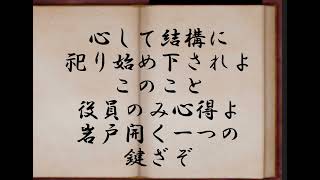 心して結構に
祀り始め下されよ
このこと
役員のみ心得よ
岩戸開く一つの
鍵ざぞ